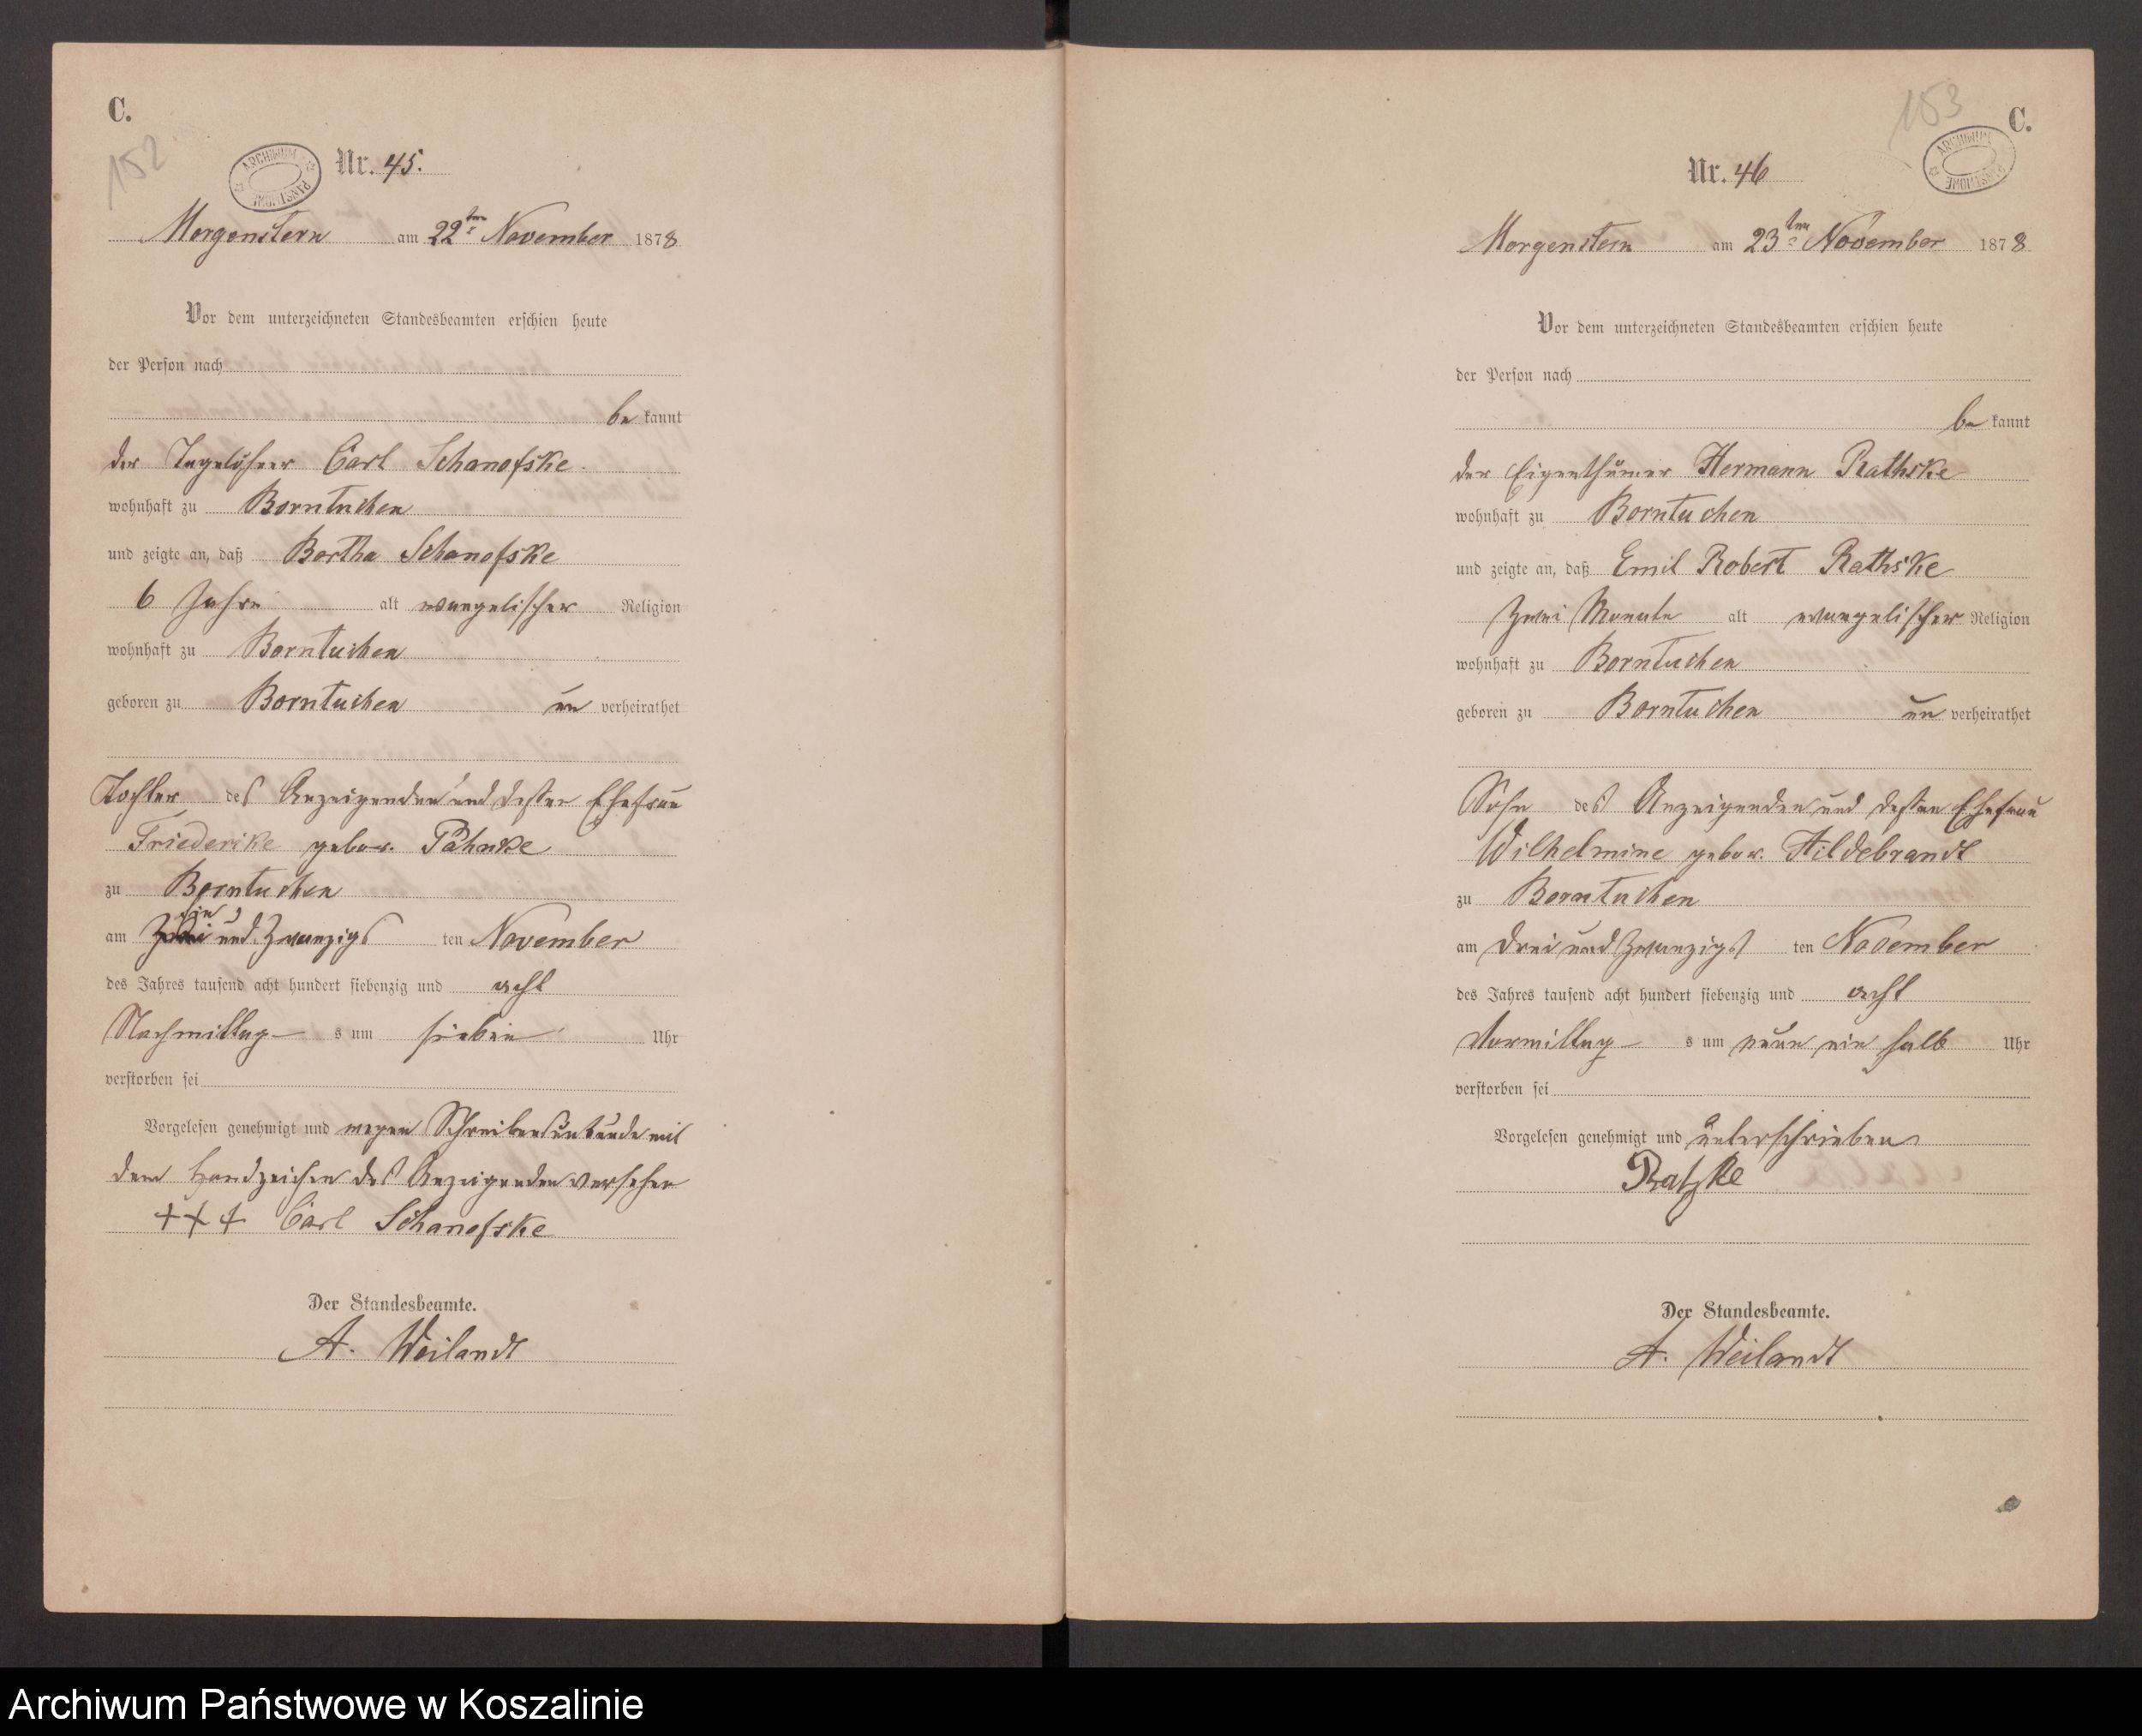 C.
152
ARCHIWUM PAŃSTWOWE
Nr. 45.
Morgenstern am 22ten November 1878
Vor dem unterzeichneten Standesbeamten erschien heute
der Person nach
be kannt
der Tagelöhner Carl Schanofske
wohnhaft zu Borntuchen
und zeigte an, daß Bertha Schanofske
6 Jahre alt evangelischer Religion
wohnhaft zu Borntuchen
geboren zu Borntuchen un verheirathet
Tochter des Anzeigenden und dessen Ehefrau
Friederike gebor. Pahnke
zu Borntuchen
ein
am und Zwanzigs ten November
des Jahres tausend acht hundert siebenzig und acht
Nachmittag s um sieben Uhr
verstorben sei
Vorgelesen genehmigt und wegen Schreibensunkunde mit
dem Handzeichen des Anzeigenden versehen
+++ Carl Schanofske
Der Standesbeamte.
A. Weilandt
153
C.
ARCHIWUM PAŃSTWOWE
Nr. 46
Morgenstern am 23ten November 1878
Vor dem unterzeichneten Standesbeamten erschien heute
der Person nach
be kannt
der Eigenthümer Hermann Rathske
wohnhaft zu Borntuchen
und zeigte an, daß Emil Robert Rathske
Zwei Monate alt evangelischer Religion
wohnhaft zu Borntuchen
geboren zu Borntuchen un verheirathet
Sohn des Anzeigenden und dessen Ehefrau
Wilhelmine gebor. Hildebrandt
zu Borntuchen
am drei und Zwanzigst ten November
des Jahres tausend acht hundert siebenzig und acht
Vormittag s um neun ein halb Uhr
verstorben sei
Vorgelesen genehmigt und unterschrieben
Ratzke
Der Standesbeamte.
A. Weilandt
Archiwum Państwowe w Koszalinie